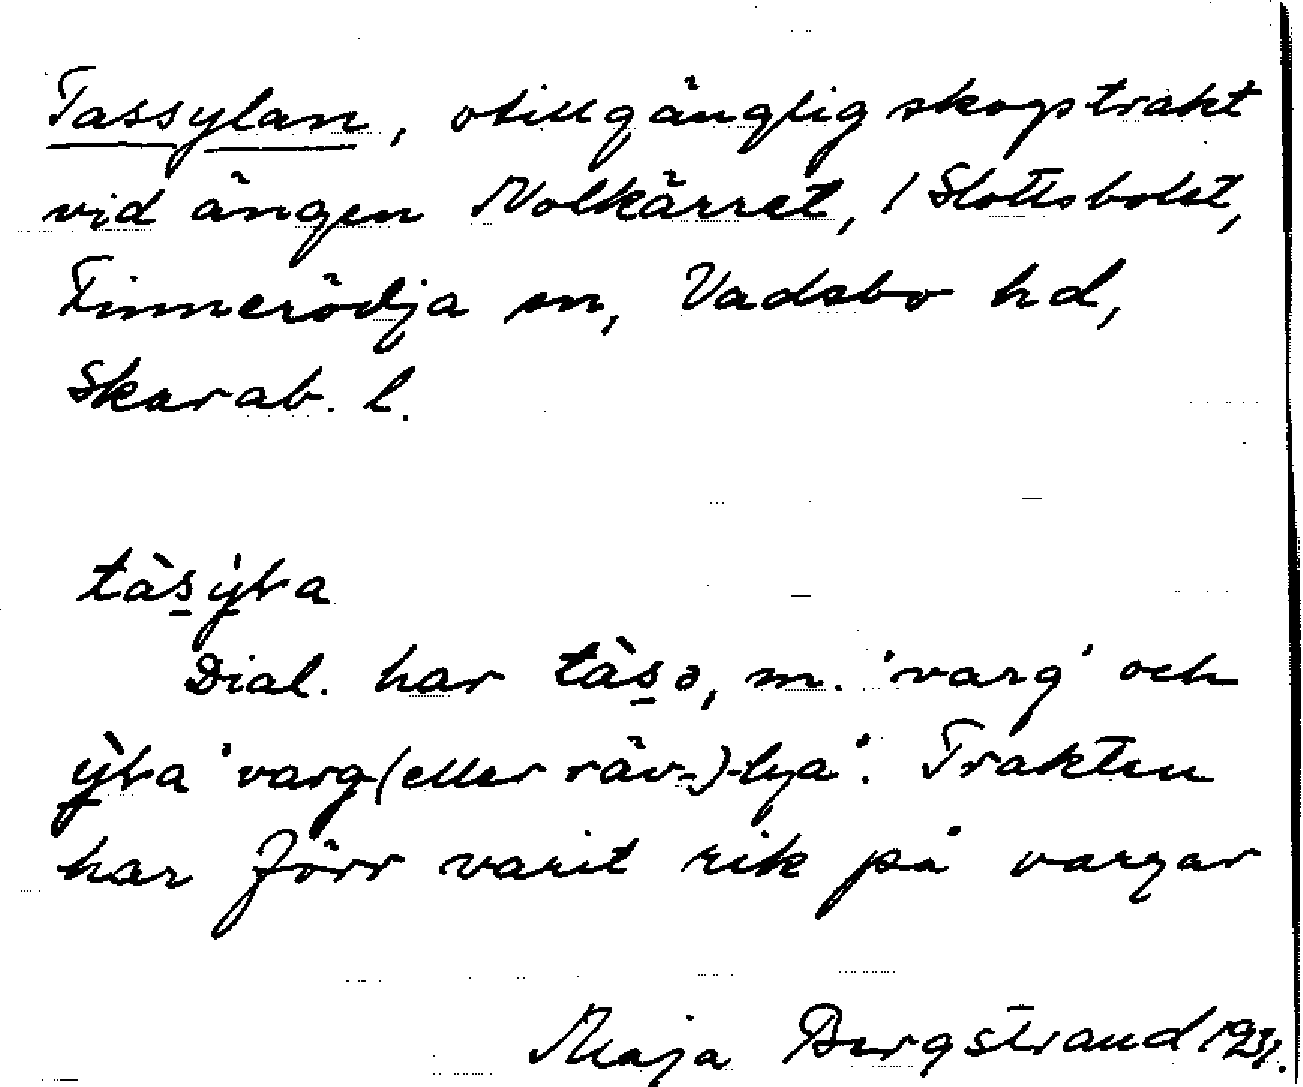 Tassylan, otillgänglig skogstrakt
vid ängen Nolkärret, / Slottsbolet,
Finnerödja sn, Vadsbo hd,
Skarab. l.
tàsÿla
Dial. har tàsə, m. 'varg' och
ỳla 'varg-(eller räv-)lya'. Trakten
har förr varit rik på vargar
Maja Bergstrand 1931.